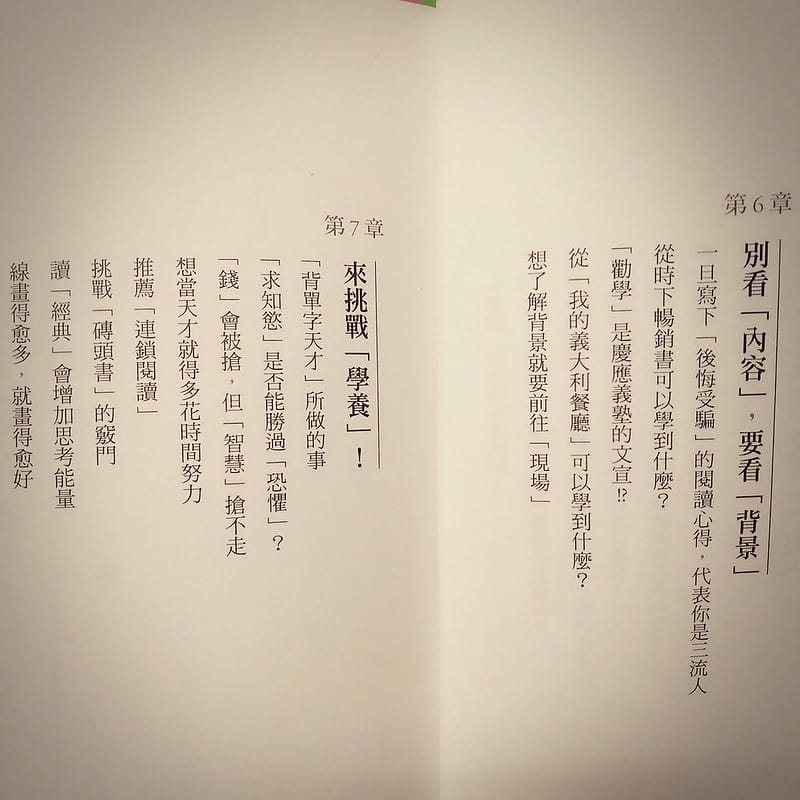 第6章
別看「內容」，要看「背景」
一旦寫下「後悔受騙」的閱讀心得，代表你是三流人
從時下暢銷書可以學到什麼？
「勸學」是慶應義塾的文宣!?
從「我的義大利餐廳」可以學到什麼？
想了解背景就要前往「現場」
第7章
來挑戰「學養」！
「背單字天才」所做的事
「求知慾」是否能勝過「恐懼」？
「錢」會被搶，但「智慧」搶不走
想當天才就得多花時間努力
推薦「連鎖閱讀」
挑戰「磚頭書」的竅門
讀「經典」會增加思考能量
線畫得愈多，就畫得愈好